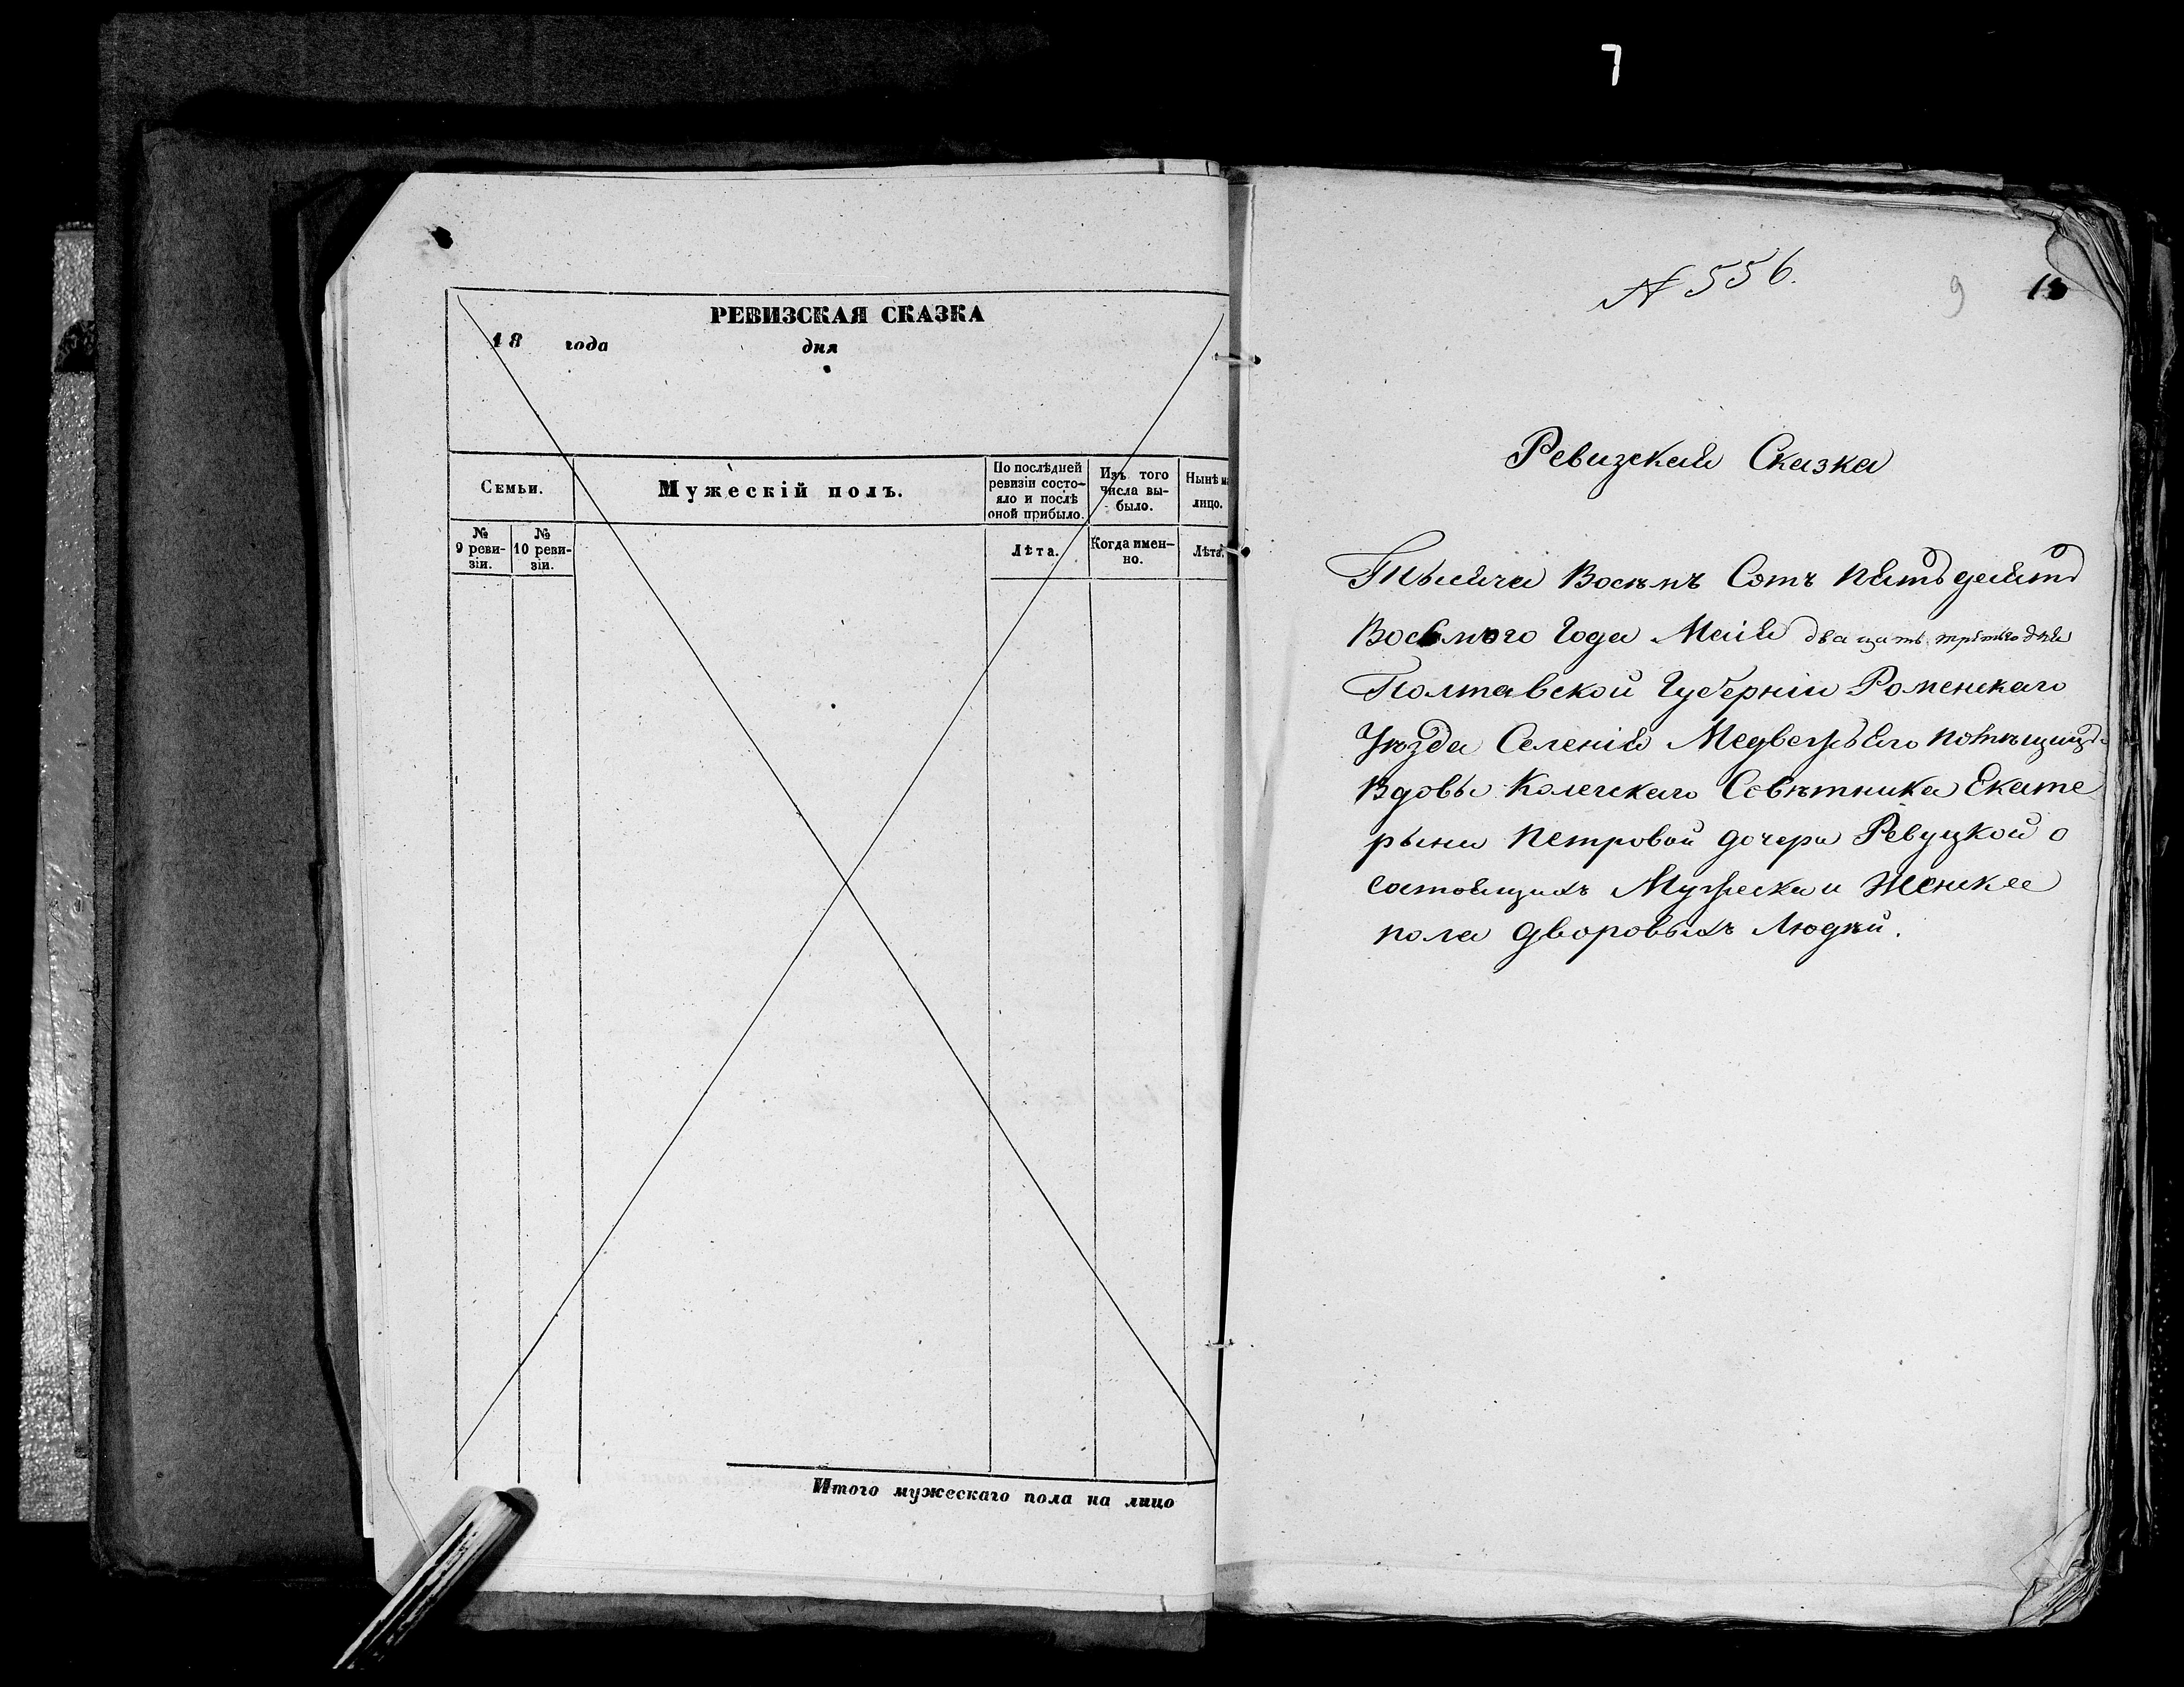 7
РЕВИЗСКАЯ СКАЗКА
18 года дня
Семьи.
Мужескій полъ.
По послѣдней
ревизіи состо-
яло и послѣ
оной прибыло.
Изъ того
числа вы-
было.
Нынѣ на
лицо.
№
9 реви-
зіи.
№
10 реви-
зіи.
Лѣта.
Когда имен-
но.
Лѣта.
Итого мужескаго пола на лицо
№ 556.
9
Ревизская Сказка
Тысяча Восѣмъ Сотъ Пятьдесятъ
Восьмого Года Маія двацать третьго дня
Полтавской Губерніи Роменскаго
Уѣзда Селенія Медвежьяго Помѣщицы
Вдовы Колегскаго Совѣтника Екате
рыны Петровой дочери Ревуцкой о
состоящихъ Мужеска и Женскае
пола дворовыхъ Людѣй.